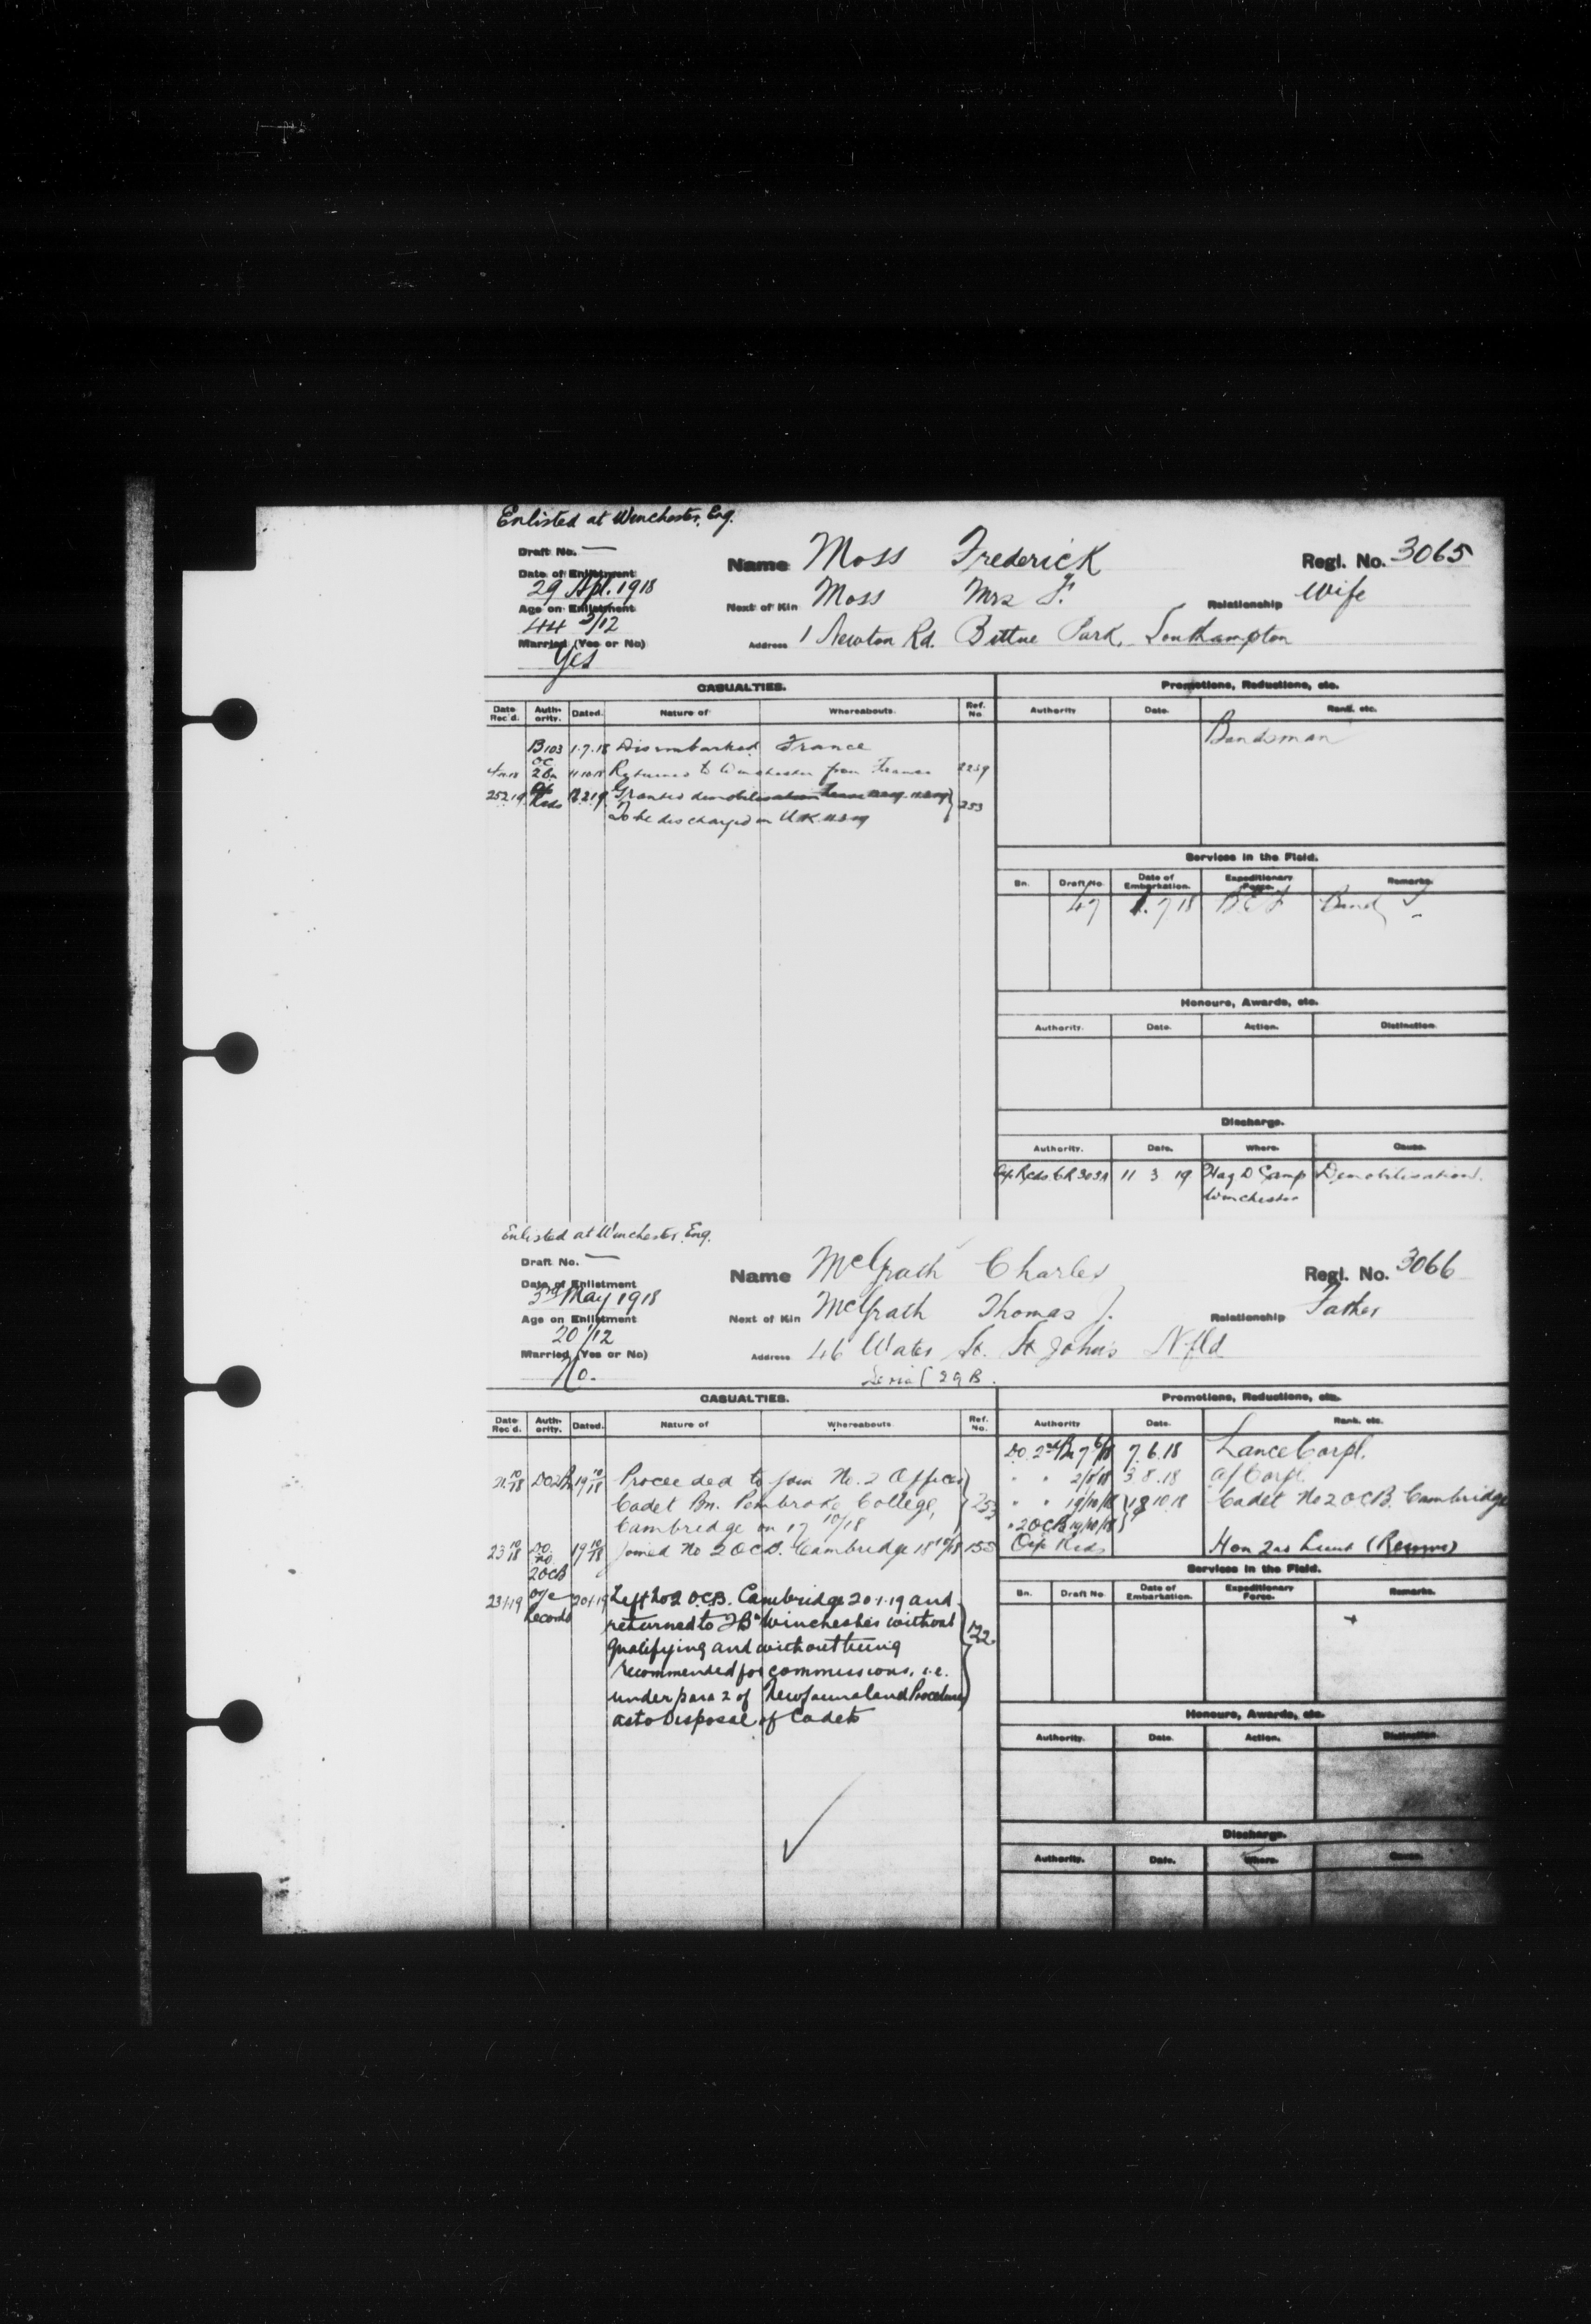 Enlisted at Winchester, Eng.
Draft No. —
Name Moss Frederick
Regl. No. 3065
Date of Enlistment
29 Apl. 1918
Next of Kin Moss Mrs F.
Relationship Wife
Age on Enlistment
44 3/12
Address 1 Newton Rd. Bittne Park, Southampton
Married (Yes or No)
Yes
CASUALTIES.
Promotions, Reductions, etc.
Date Rec'd. Auth- ority. Dated. Nature of Whereabouts. Ref. No
Authority Date. Rank. etc.
Bandsman
B103 1.7.18 Disembarked France
OC 2Bn 11.10.18 Returned to Winchester from France 2239
25219 Recds Granted demobilisation leave 253
To be discharged in U.K.
Services in the Field.
Bn. Draft No. Date of Embarkation. Expeditionary Force. Remarks.
47 1.7 18 BEF Band
Honours, Awards, etc.
Authority. Date. Action. Distinction
Discharge.
Authority. Date. Where. Cause.
Recds CR 11 3 19 Haz D Camp Winchester Demobilisation.
Enlisted at Winchester, Eng.
Draft No. —
Name McGrath Charles
Regl. No. 3066
Date of Enlistment
3rd May 1918
Next of Kin McGrath Thomas J.
Relationship Father
Age on Enlistment
20 1/12
Address 46 Water St. St John's Nfld
Married (Yes or No)
No.
Serial 29B.
CASUALTIES.
Promotions, Reductions, etc.
Date Rec'd. Auth- ority. Dated. Nature of Whereabouts Ref. No.
Authority Date. Rank. etc.
DO 2nd Bn 7/6/18 7.6.18 Lance Corpl.
" " 2/8/18 3.8.18 a/Corpl.
" " 19/10/18 18 10 18 Cadet No 2 OCB. Cambridge
" 2OCB 19/10/18
Recds Hon 2nd Lieut (Reserve)
21 10/18 19 10/18 Proceeded to join No. 2 Officer
Cadet Bn. Pembroke College, 253
Cambridge on 17 10/18
23 10/18 DO No 2OCB 19 10/18 Joined No 2 OCB. Cambridge 18 10/18 155
23 1 19 O/c Records 20 1 19 Left No 2 OCB. Cambridge 20.1.19 and
returned to 2Bn Winchester without 122
qualifying and without being
recommended for commissions, i.e.
under para 2 of Newfoundland Procedure
as to Disposal of Cadets
Services in the Field.
Bn. Draft No. Date of Embarkation. Expeditionary Force. Remarks.
Honours, Awards, etc.
Authority. Date. Action. Distinction.
Discharge.
Authority. Date. Where. Cause.